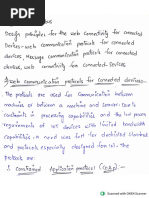 Design principles for the web connectivity for connected
devices-web communication protocols for connected
devices, Message communication protocols for connected
devices, web connectivity for connected-devices.
web communication protocols for connected devices:-
The protocols are used for communication between
machines or between a machine and
constraints in processing capabilities and the low power
requirements of IOT devices with limited bandwidth
capabilities. a need was felt for dedicated standards
and protocols especially designed for IOT. The
protocols are:
1. constrained Application protocol (CoAP):-
Scanned with OKEN Scanner